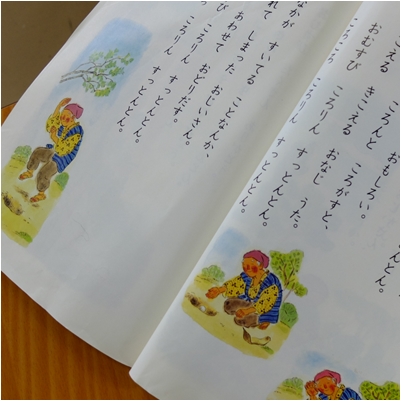 とんとん。
こえる きこえる
ころんと おもしろい。
おむすび ころがすと、
ころころ ころりん おなじ うた。
ころりん すっとんとん。
すっとんとん。
なかが すいてる ことなんか、
れて しまった おじいさん。
あわせて おどりだす。
ころりん すっとんとん。
ころりん すっとんとん。